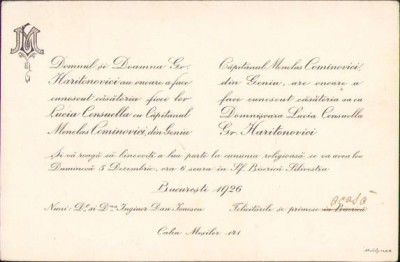 M
Domnul și Doamna Gr.
Haritonovici au onoare a face
cunoscut căsătoria fiicei lor
Lucia Consuella cu Căpitanul
Menelas Cominovici, din Geniu
Căpitanul Menelas Cominovici,
din Geniu, are onoare a
face cunoscut căsătoria sa cu
Domnișoara Lucia Consuella
Gr. Haritonovici
Se vă roagă să binevoiți a lua parte la cununia religioasă, ce va avea loc
Duminică 5 Decembrie, ora 6 seara în Sf. Biserică Silvestru
București 1926
Nuni: Dl. și Dna Inginer Dan Ionescu
Felicitările se primesc la Biserică
acasă
Calea Moșilor 131